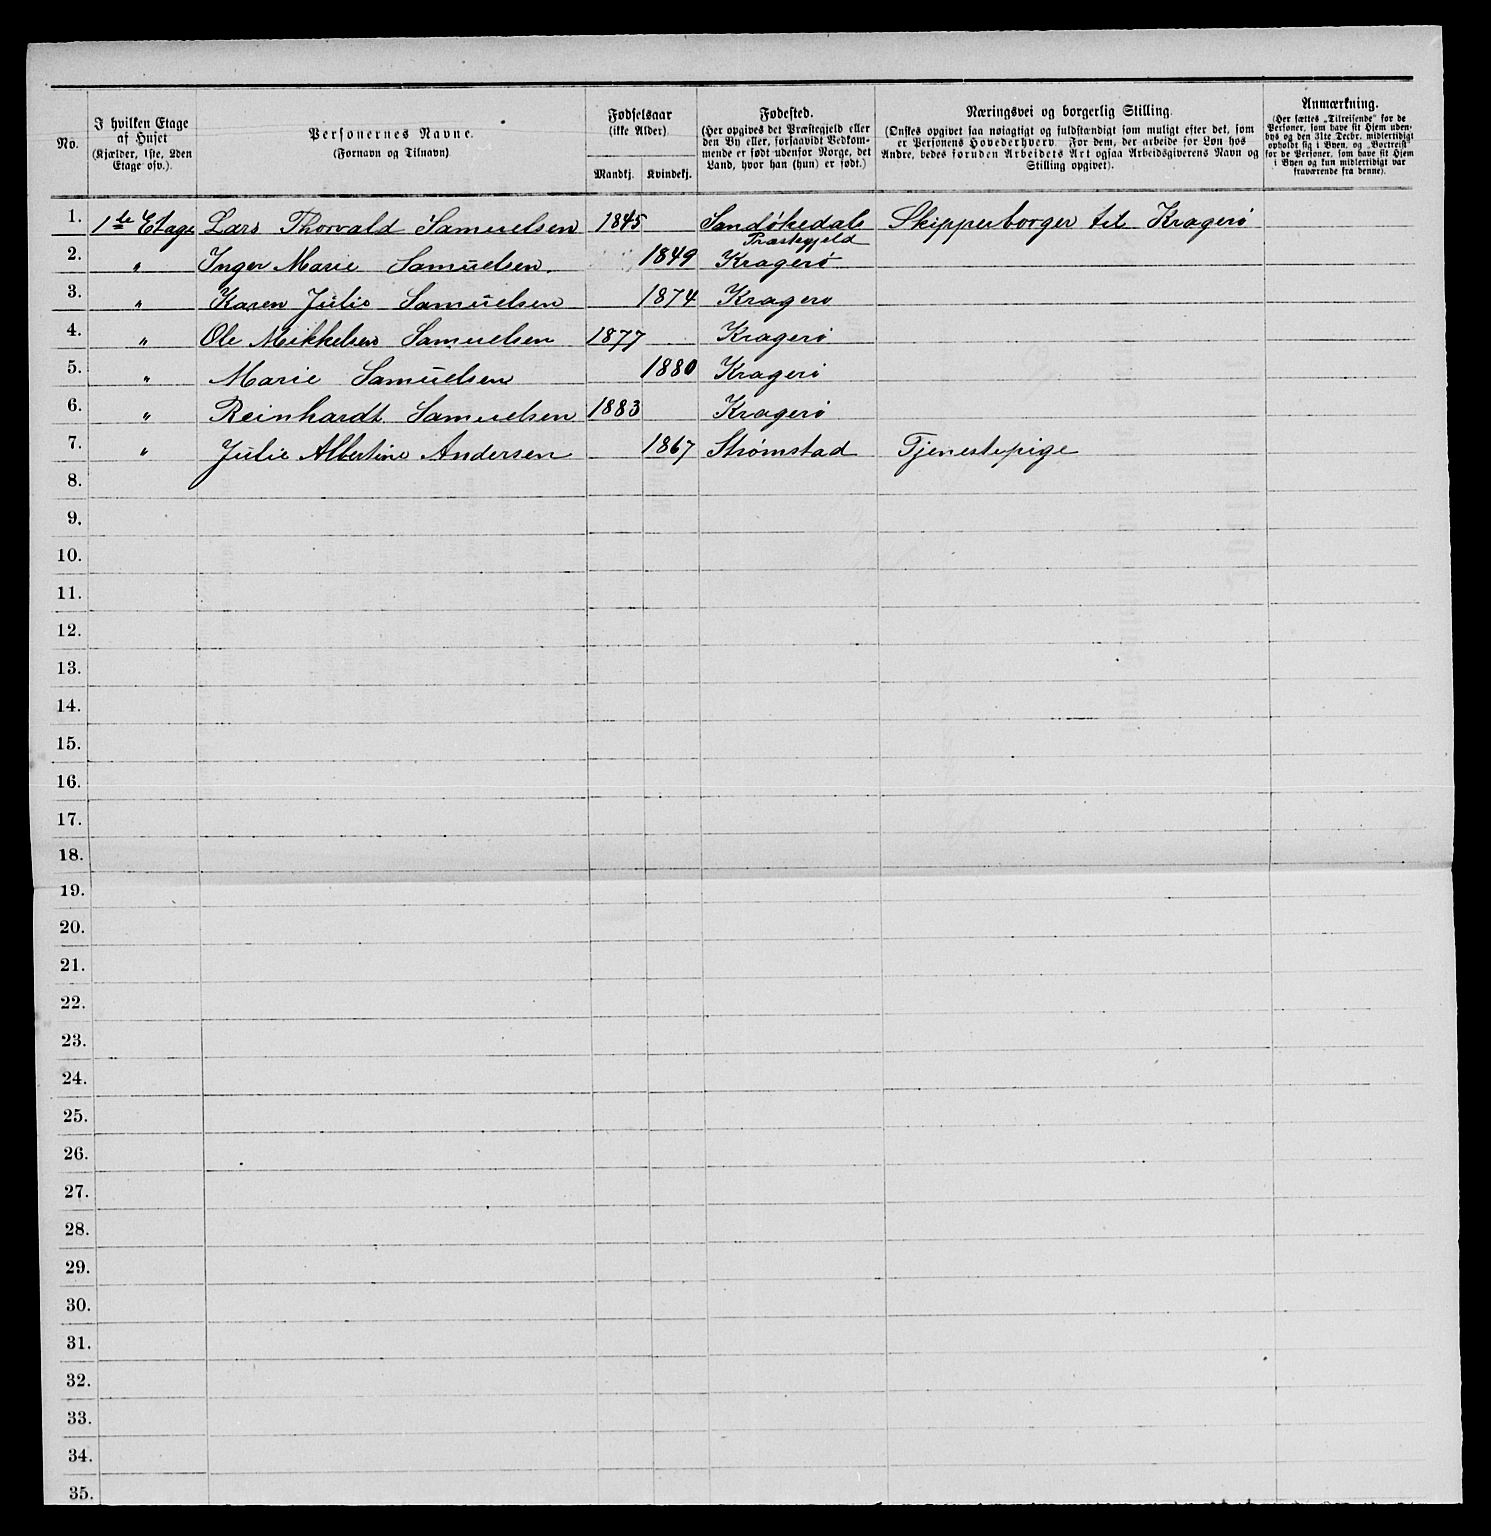 No.
I hvilken Etage
af Huset
(Kjælder, 1ste, 2den
Etage osv.).
Personernes Navne.
(Fornavn og Tilnavn)
Fødselsaar
(ikke Alder).
Mandkj. Kvindekj.
Fødested.
(Her opgives det Præstegjeld eller
den By eller, forsaavidt Vedkom-
mende er født udenfor Norge, det
Land, hvor han (hun) er født.)
Næringsvei og borgerlig Stilling.
(Ønskes opgivet saa nøiagtigt og fuldstændigt som muligt efter det, som
er Personens Hovederhverv. For dem, der arbeide for Løn hos
Andre, bedes foruden Arbeidets Art ogsaa Arbeidsgiverens Navn og
Stilling opgivet).
Anmærkning.
(Her sættes „Tilreisende" for de
Personer, som have sit Hjem uden-
bys og den 31te Decbr. midlertidigt
opholdt sig i Byen, og „Bortreist"
for de Personer, som have sit Hjem
i Byen og kun midlertidigt var
fraværende fra denne).
1. 1ste Etage Lars Thorvald Samuelsen 1845 Sandøkedals Skipperborger til Kragerø
Præstegjeld
2. " Inger Marie Samuelsen. 1849 Kragerø
3. " Karen Julie Samuelsen 1874 Kragerø
4. " Ole Mikkelsen Samuelsen 1877 Kragerø
5. " Marie Samuelsen 1880 Kragerø
6. " Reinhardt Samuelsen 1883 Kragerø
7. " Julie Albertine Andersen 1867 Strømstad Tjenestepige
8.
9.
10.
11.
12.
13.
14.
15.
16.
17.
18.
19.
20.
21.
22.
23.
24.
25.
26.
27.
28.
29.
30.
31.
32.
33.
34.
35.